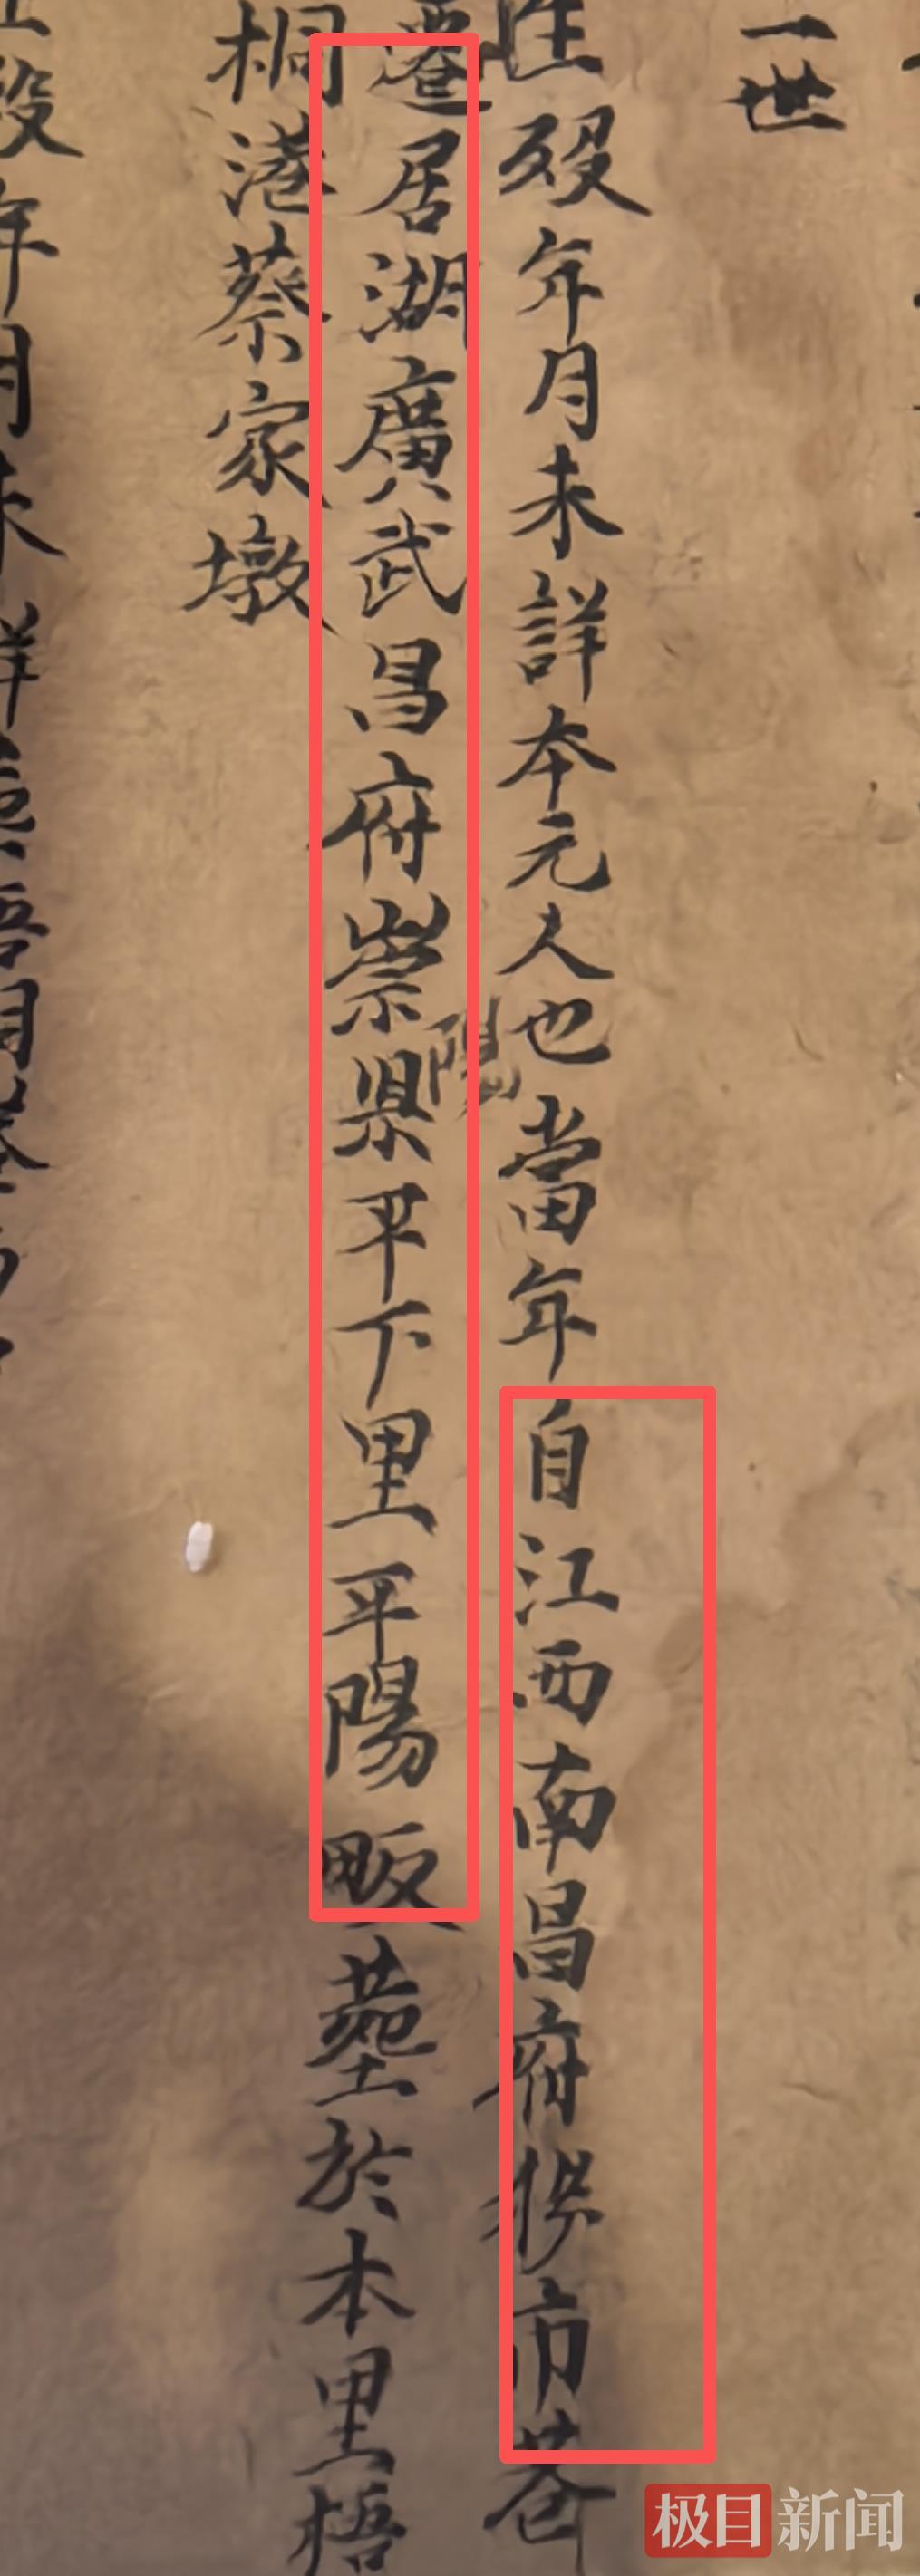 一世
生殁年月未詳本元人也當年自江西南昌府
市
遷居湖廣武昌府崇県平下里平陽畈塟於本里梧
陽
桐港蔡家墩
殁年月未詳
极目新闻